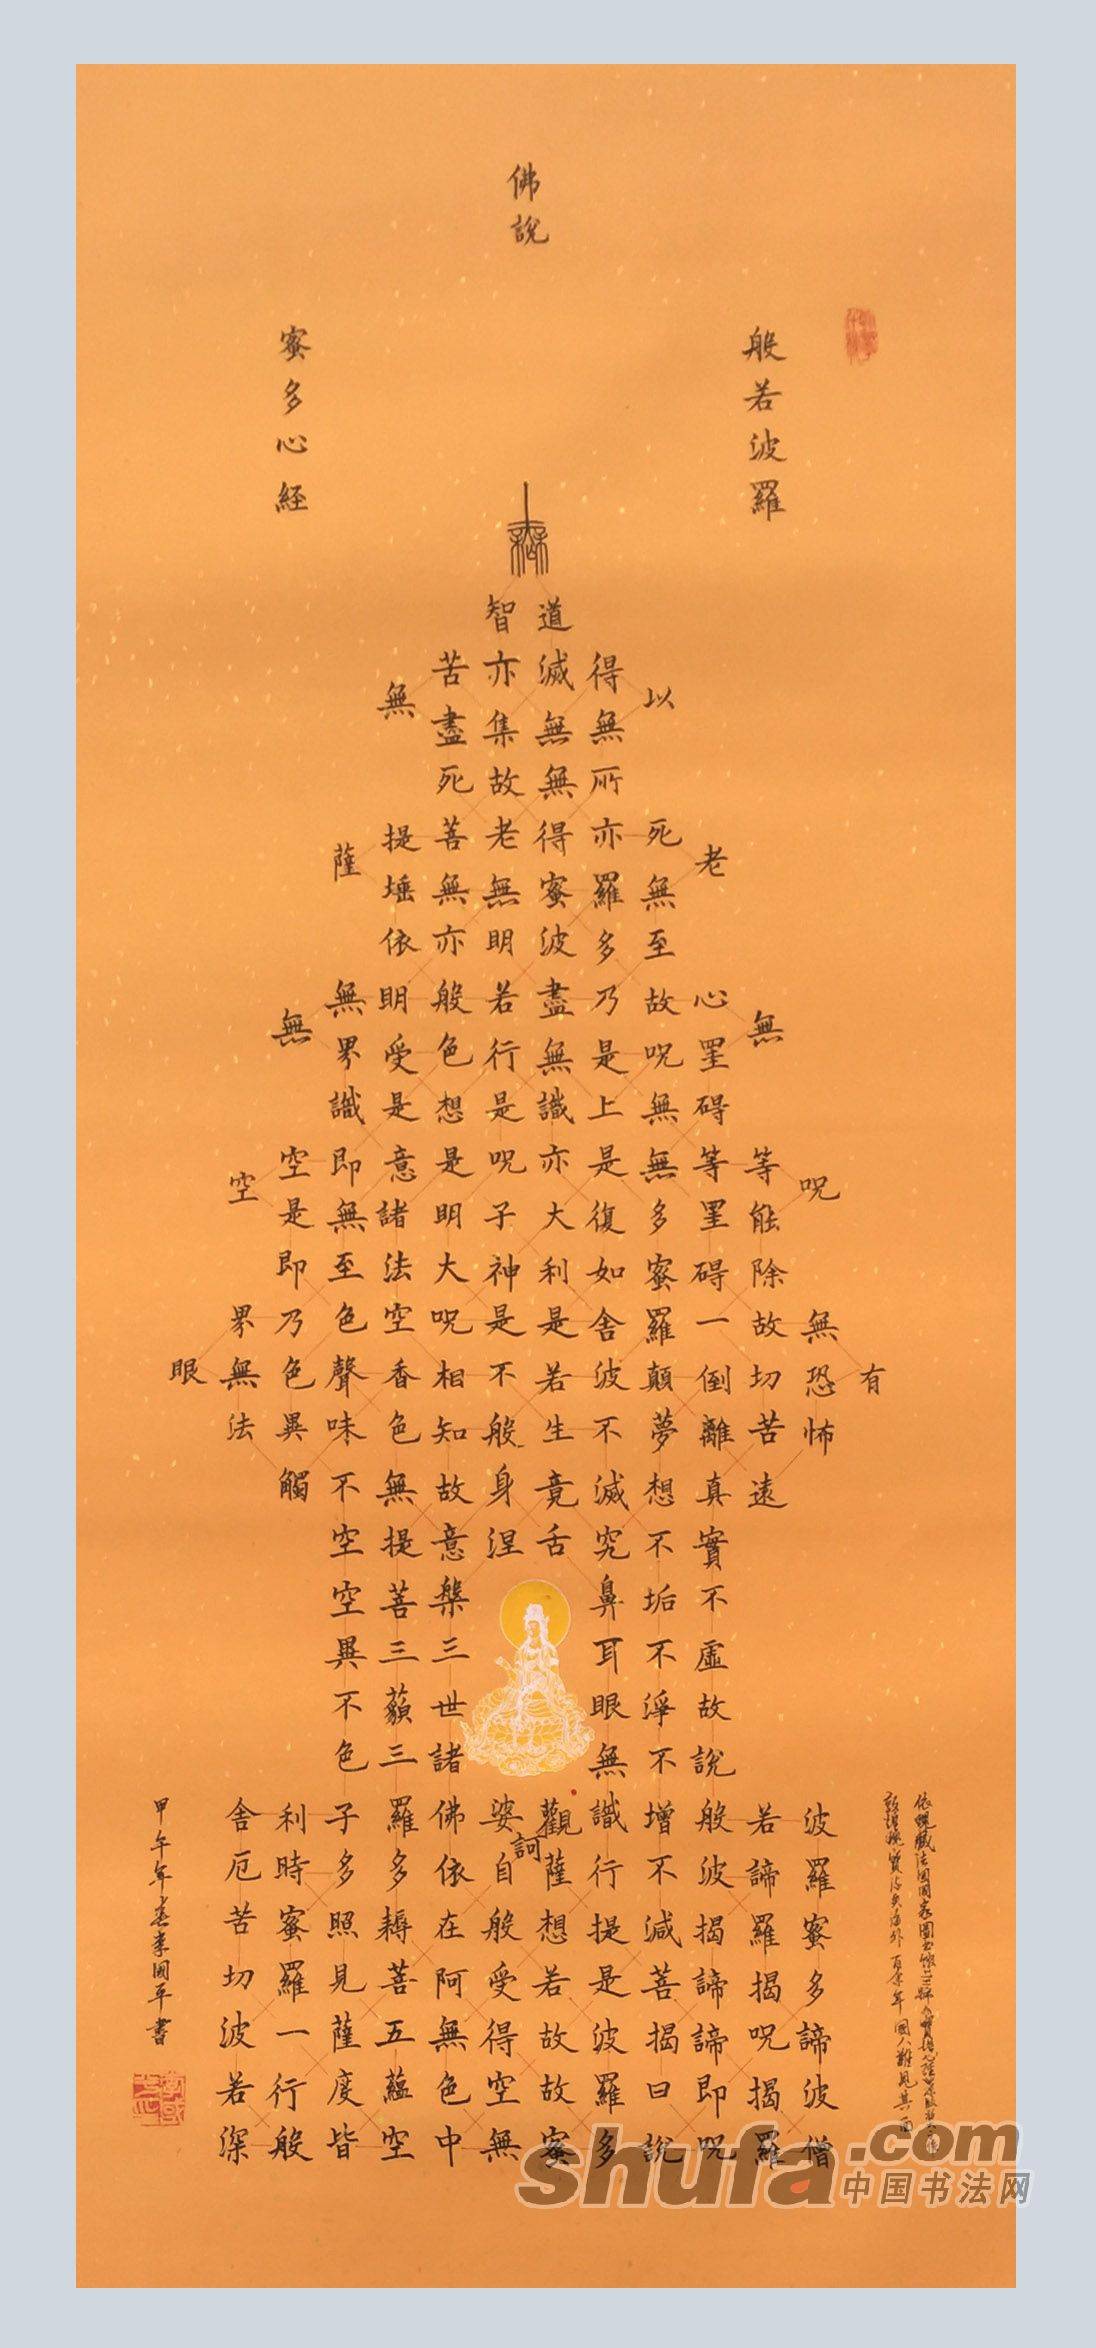 佛說
般若波羅
蜜多心経
有
呪無恐怖波羅蜜多諦波僧
無等能除故切苦遠若諦羅揭呪揭羅
老心罣碍等罣碍一倒離真實不虛故說般波揭諦諦即呪
以死無至故呪無無多蜜羅顛夢想不垢不淨不增不減菩揭曰說
得無所亦羅多乃是上是復如舍波不滅究鼻耳眼無識行提是波羅多
道滅無無得蜜波盡無識亦大利是若生竟舌觀薩想若故故蜜
智亦集故老無明若行是呪子神是不般身涅婆訶自般受得空無
苦盡死菩無亦般色想是明大呪相知故意槃三世諸佛依在阿無色中
無提埵依明受是意諸法空香色無提菩三藐三羅多耨菩五蘊空
薩無界識即無至色聲味不空空異不色子多照見薩度皆
無空是即乃色異觸利時蜜羅一行般
空界無法舍厄苦切波若深
眼
百余年國人難見其面
甲午年春李國平書
shufa.com
中国书法网